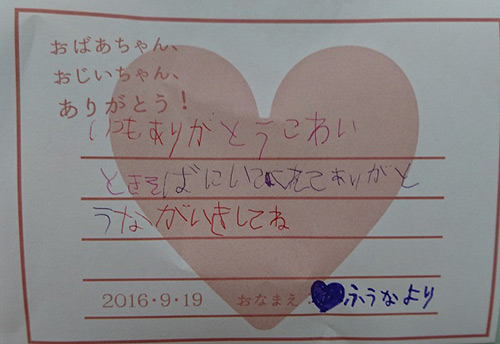 おばあちゃん、
おじいちゃん、
ありがとう!
いつもありがとうこわい
ときそばにいてくれてありがと
うながいきしてね
2016・9・19 おなまえ ふうなより